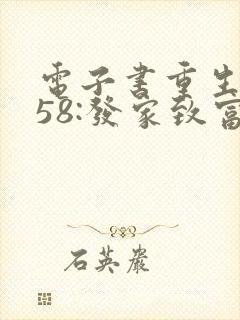 電子書重生
58:發家致富
石英嚴